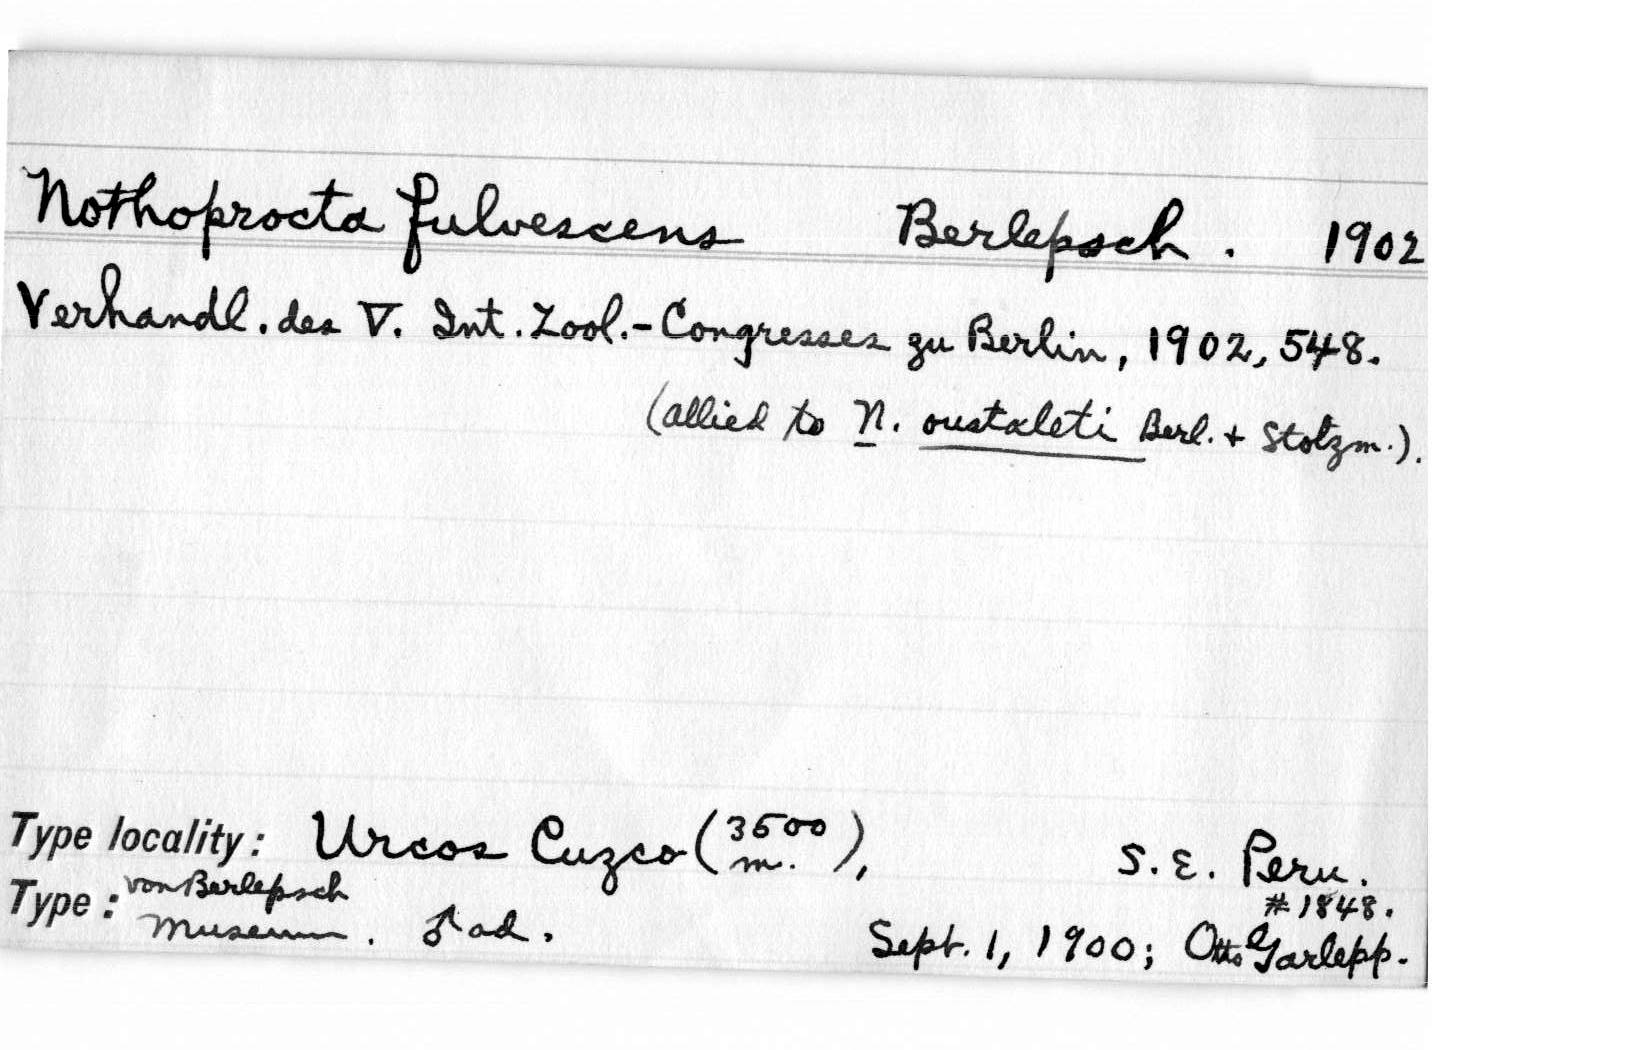 Nothoprocta fulvescens Berlepsch. 1902
Verhandl. des V. Int. Zool.-Congresses zu Berlin, 1902, 548.
(allied to N. oustaleti Berl. + Stolzm.).
Type locality: Urcos Cuzco (3500 m.), S.E. Peru.
Type: von Berlepsch Museum. ♂ ad. #1848.
Sept. 1, 1900; Otto Garlepp.